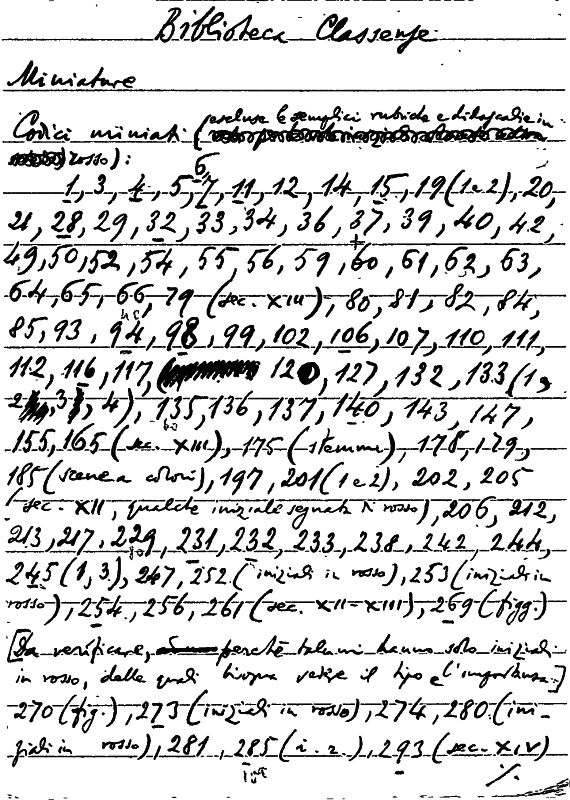 Biblioteca Classense
Miniature
Codici miniati (escluse le semplici rubriche e didascalie in
rosso):
6,
1, 3, 4, 5, 7, 11, 12, 14, 15, 19 (1 e 2), 20,
21, 28, 29, 32, 33, 34, 36, 37, 39, 40, 42,
49, 50, 52, 54, 55, 56, 59, 60, 61, 62, 63,
64, 65, 66, 79 (sec. XIII), 80, 81, 82, 84,
85, 93, 94, 98, 99, 102, 106, 107, 110, 111,
112, 116, 117, 120, 127, 132, 133 (1,
2, 3, 4), 135, 136, 137, 140, 143, 147,
155, 165 (sec. XIII), 175 (stemma), 178, 179,
185 (scene a colori), 197, 201 (1 e 2), 202, 205
(sec. XII, qualche iniziale segnata di rosso), 206, 212,
213, 217, 229, 231, 232, 233, 238, 242, 244,
245 (1, 3), 247, 252 (iniziali in rosso), 253 (iniziali in
rosso), 254, 256, 261 (sec. XII-XIII), 269 (figg.)
[Da verificare, perchè taluni hanno solo iniziali
in rosso, delle quali bisogna vedere il tipo e l'importanza.]
270 (fig.), 273 (iniziali in rosso), 274, 280 (ini-
ziali in rosso), 281, 285 (i. r.), 293 (sec. XIV)
./.